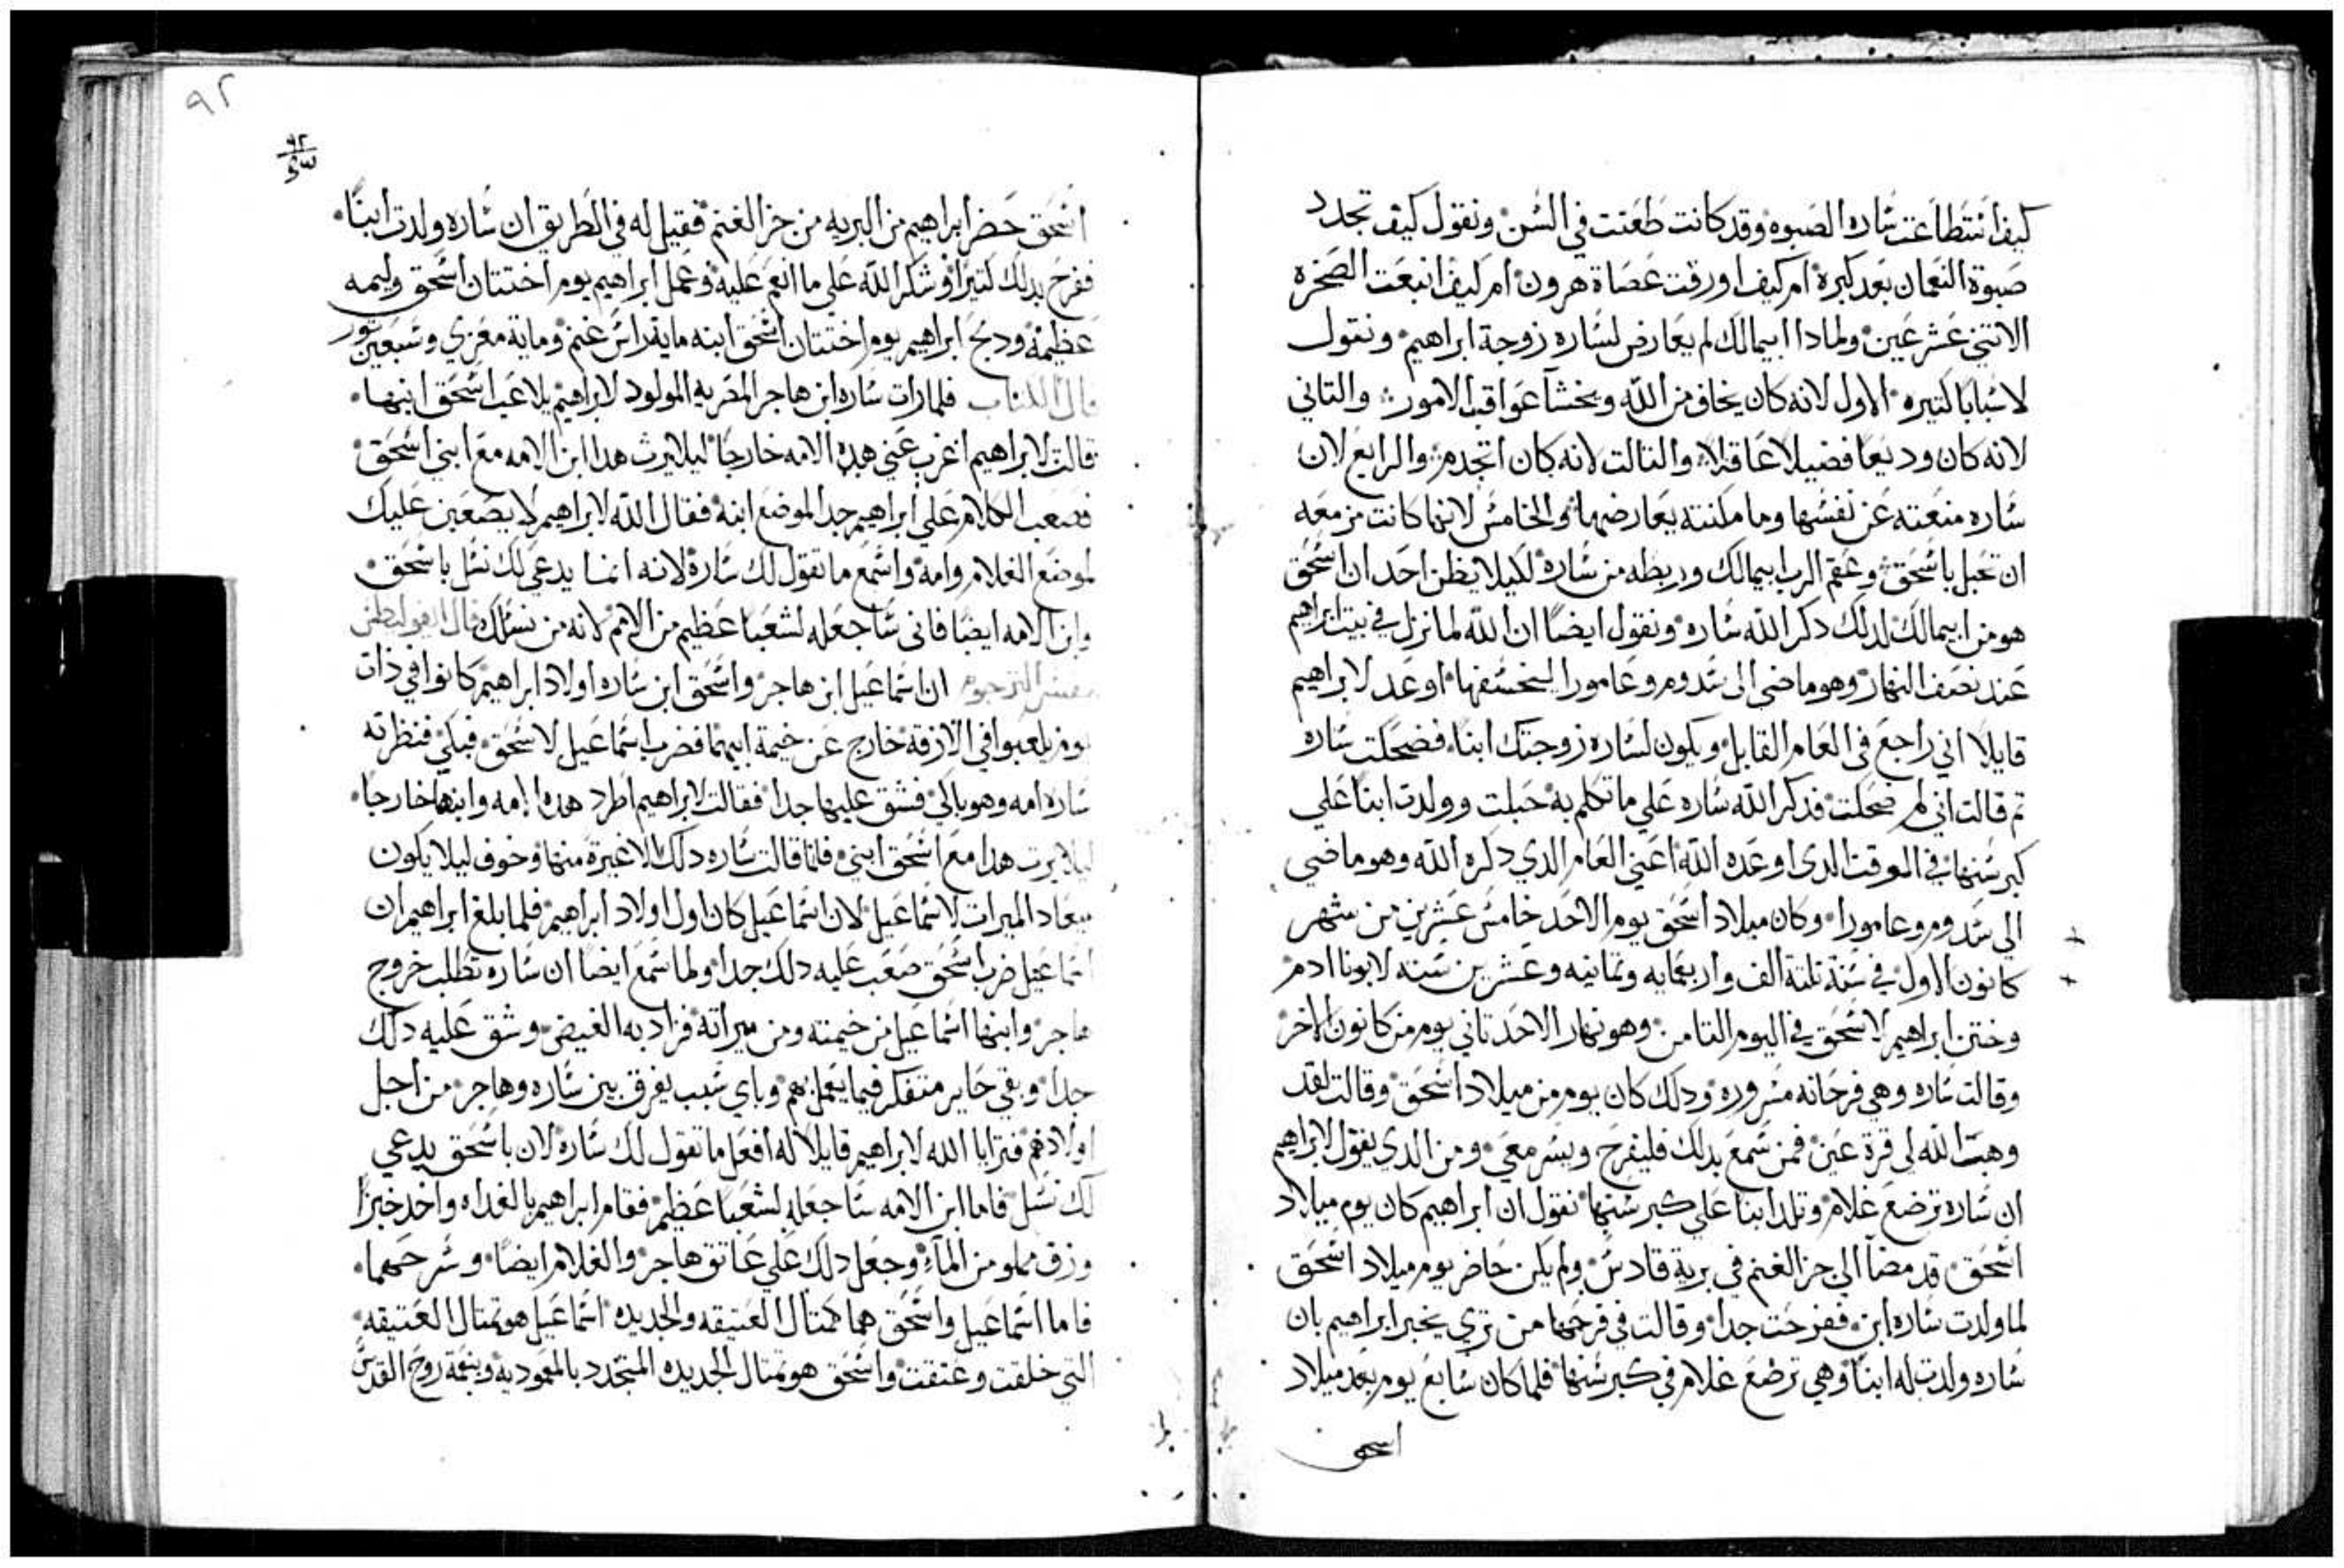 كيف أستطاعت ساره الصبوه وقد كانت طعنت في السن ونقول كيف تجدد
صبوة النعمان بعد كبره ام كيف اورقت عصاة هرون ام كيف انبعت الصخره
الاتني عشر عين ولمادا ابيمالك لم يعارض لساره زوجة ابراهيم ونقول
لاسبابا كتيره الاول لانه كان يخاف من الله ويخشآ عواقب الامور والتاني
لانه كان وديعا فضيلا عاقلا والتالت لانه كان اتجدم والرابع لان
ساره منعته عن نفسها وما مكنته يعارضها والخامس لانها كانت مزمعه
ان تحبل باسحق وعقم الرب ابيمالك وربطه من ساره لكيلا يظن احد ان اسحق
هو من ابيمالك لدلك دكر الله ساره ونقول ايضا ان الله لما نزل في بيت ابراهيم
عند نصف النهار وهو ماضي الى سدوم وعامورا ليخسفها اوعد لابراهيم
قايلا اني راجع في العام القابل ويكون لساره زوجتك ابنا فضحكت ساره
تم قالت اني لم ضحكت فدكر الله ساره علي ما تكلم به حبلت وولدت ابنا علي
كبر سنها في الموقت الدى اوعده الله اعني العام الدي دكره الله وهو ماضي
الى سدوم وعامورا وكان ميلاد اسحق يوم الاحد خامس عشرين من شهر
كانون الاول في سنة تلتة الف واربعمايه وتمانيه وعشرين سنه لابونا ادم
وختن ابراهيم لاسحق في اليوم التامن وهو نهار الاحد تاني يوم من كانون الاخر
وقالت ساره وهي فرحانه مسروره ودلك كان يوم من ميلاد اسحق وقالت لقد
وهب الله لي قرة عين فمن سمع بدلك فليفرح ويسر معي ومن الدي يقول لابراهيم
ان ساره ترضع غلام وتلد ابنا علي كبر سنها نقول ان ابراهيم كان يوم ميلاد
اسحق قد مضآ الي جز الغنم في برية قادس ولم يكن حاضر يوم ميلاد اسحق
لما ولدت ساره ابن ففرحت جدا وقالت في فرحها من تري يخبر ابراهيم بان
ساره ولدت له ابنا وهي ترضع غلام في كبر سنها فلما كان سابع يوم بعد ميلاد
اسحق
٩٢
٩٢
اسحق حضر ابراهيم من البريه من جز الغنم فقيل له في الطريق ان ساره ولدت ابنا
ففرح بدلك كتيرا وشكر الله علي ما انعم عليه وعمل ابراهيم يوم اختتان اسحق وليمه
عظيمه ودبح ابراهيم يوم اختتان اسحق ابنه ماية راس غنم وماية معزي وسبعين تور
قال الكتاب فلما رات ساره ابن هاجر المصريه المولود لابراهيم يلاعب اسحق ابنها
قالت لابراهيم اغرب عني هده الامه خارجا ليلا يرث هدا ابن الامه مع ابني اسحق
فصعب الكلام علي ابراهيم جدا لموضع ابنه فقال الله لابراهيم لا يصعبن عليك
لموضع الغلام وامه واسمع ما تقول لك ساره لانه انما يدعي لك نسل باسحق
وابن الامه ايضا فاني ساجعله لشعبا عظيم من الامم لانه من نسلك قال
مفسر الترجوم ان اسماعيل ابن هاجر واسحق ابن ساره اولاد ابراهيم كانوا في ذات
يوم يلعبوا في الازقه خارج عن خيمة ابيهما فضرب اسماعيل لاسحق فبكي فنظرته
ساره امه وهو باكي فشق عليها جدا فقالت لابراهيم اطرد هده الامه وابنها خارجا
ليلا يرت هدا مع اسحق ابني فلما قالت ساره دلك الاغيرة منها وخوف ليلا يكون
ميعاد الميرات لاسماعيل لان اسماعيل كان اول اولاد ابراهيم فلما بلغ ابراهيم ان
اسماعيل ضرب اسحق صعب عليه دلك جدا ولما سمع ايضا ان ساره تطلب خروج
هاجر وابنها اسماعيل من خيمته ومن ميراته فزاد به الغيض وشق عليه دلك
جدا وبقي حاير متفكر فيما يعمل بهم وباي سبب يفرق بين ساره وهاجر من اجل
اولادهم فترايا الله لابراهيم قايلا له افعل ما تقول لك ساره لان باسحق يدعي
لك نسل فاما ابن الامه ساجعله لشعبا عظيم فقام ابراهيم بالغداه واخد خبزا
وزق مملو من المآء وجعل دلك علي عاتق هاجر والغلام ايضا وسرحهما
فاما اسماعيل واسحق هما كمتال العتيقه والجديده اسماعيل هو تمتال العتيقه
التي خلقت وعتقت واسحق هو تمتال الجديده المتجدد بالمعموديه وبنعمة روح القدس